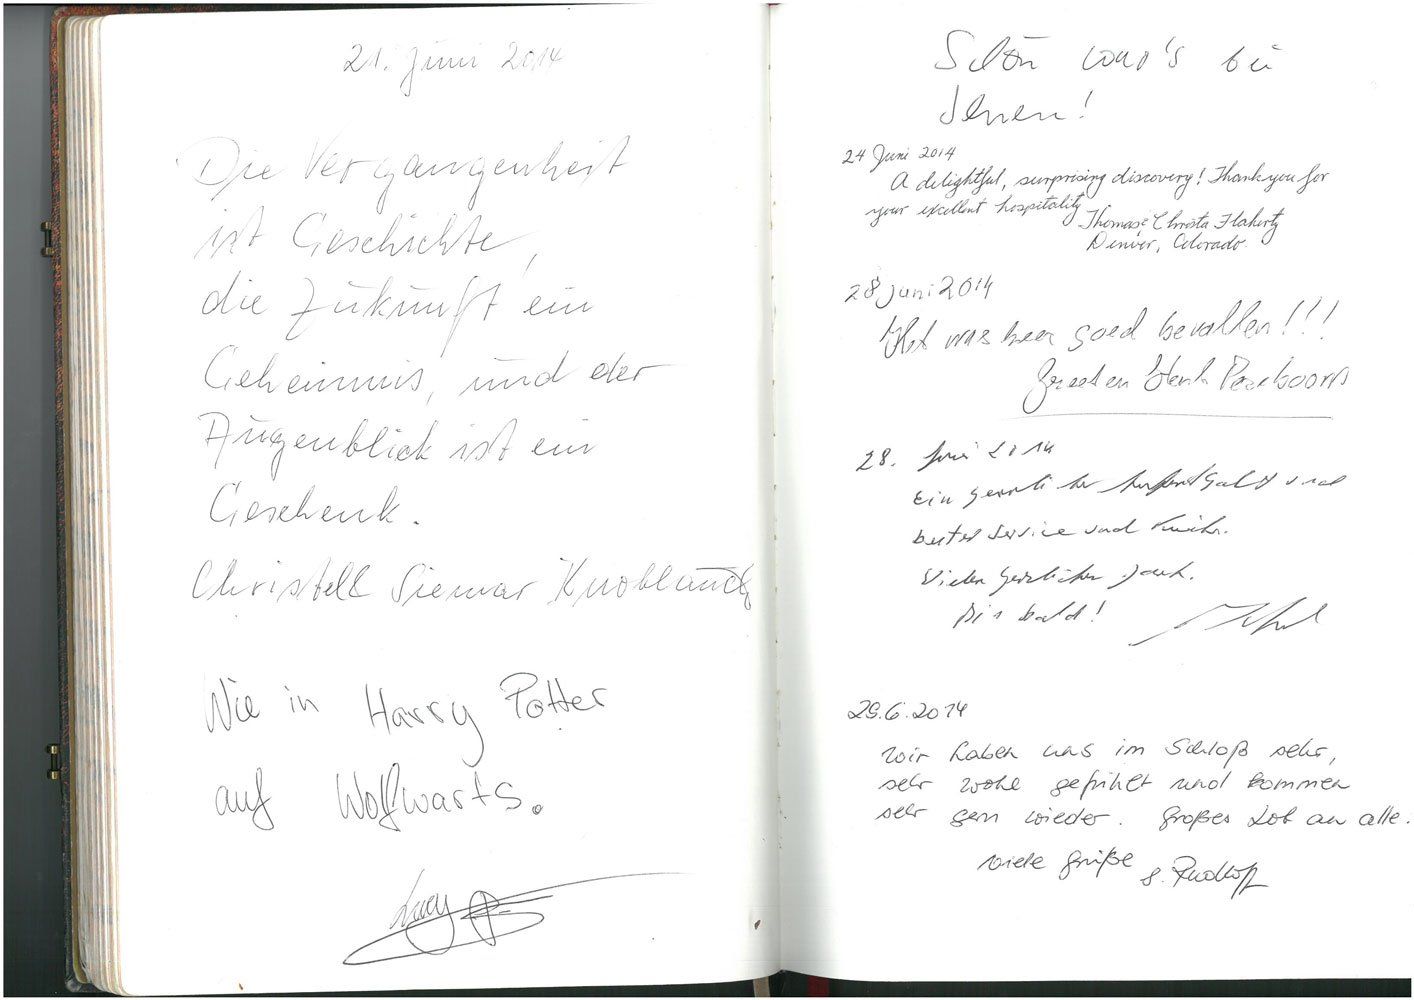 21. Juni 2014
Die Vergangenheit
ist Geschichte,
die Zukunft ein
Geheimnis, und der
Augenblick ist ein
Geschenk.
Christell Siemar Knoblauch
Wie in Harry Potter
auf Wolfwarts.
Lucy
Schön war's bei
Ihnen!
24 Juni 2014
A delightful, surprising discovery! Thank you for
your excellent hospitality
Thomas & Christa Flaherty
Denver, Colorado
28 juni 2014
Het was heer goed bevallen!!!
Groeten Henk
28. Juni 2014
Ein herrlicher und
bester Service und
Vielen herzlichen Dank.
Bis bald!
29.6.2014
Wir haben uns im Schloß sehr,
sehr wohl gefühlt und kommen
sehr gern wieder. Großes Lob an alle.
Viele Grüße